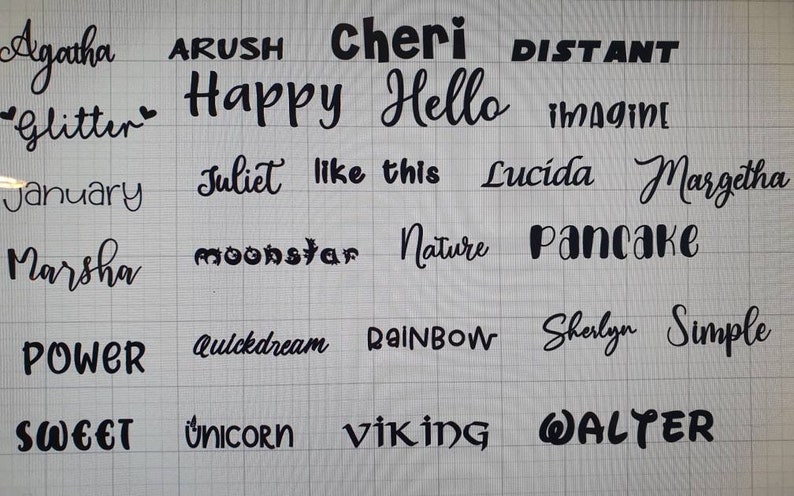 Agatha ARUSH Cheri DISTANT
Glitter Happy Hello imagine
January Juliet like this Lucida Margetha
Marsha moonstar Nature Pancake
POWER Quickdream RAINBOW Sherlyn Simple
SWEET UNICORN VIKING WALTER